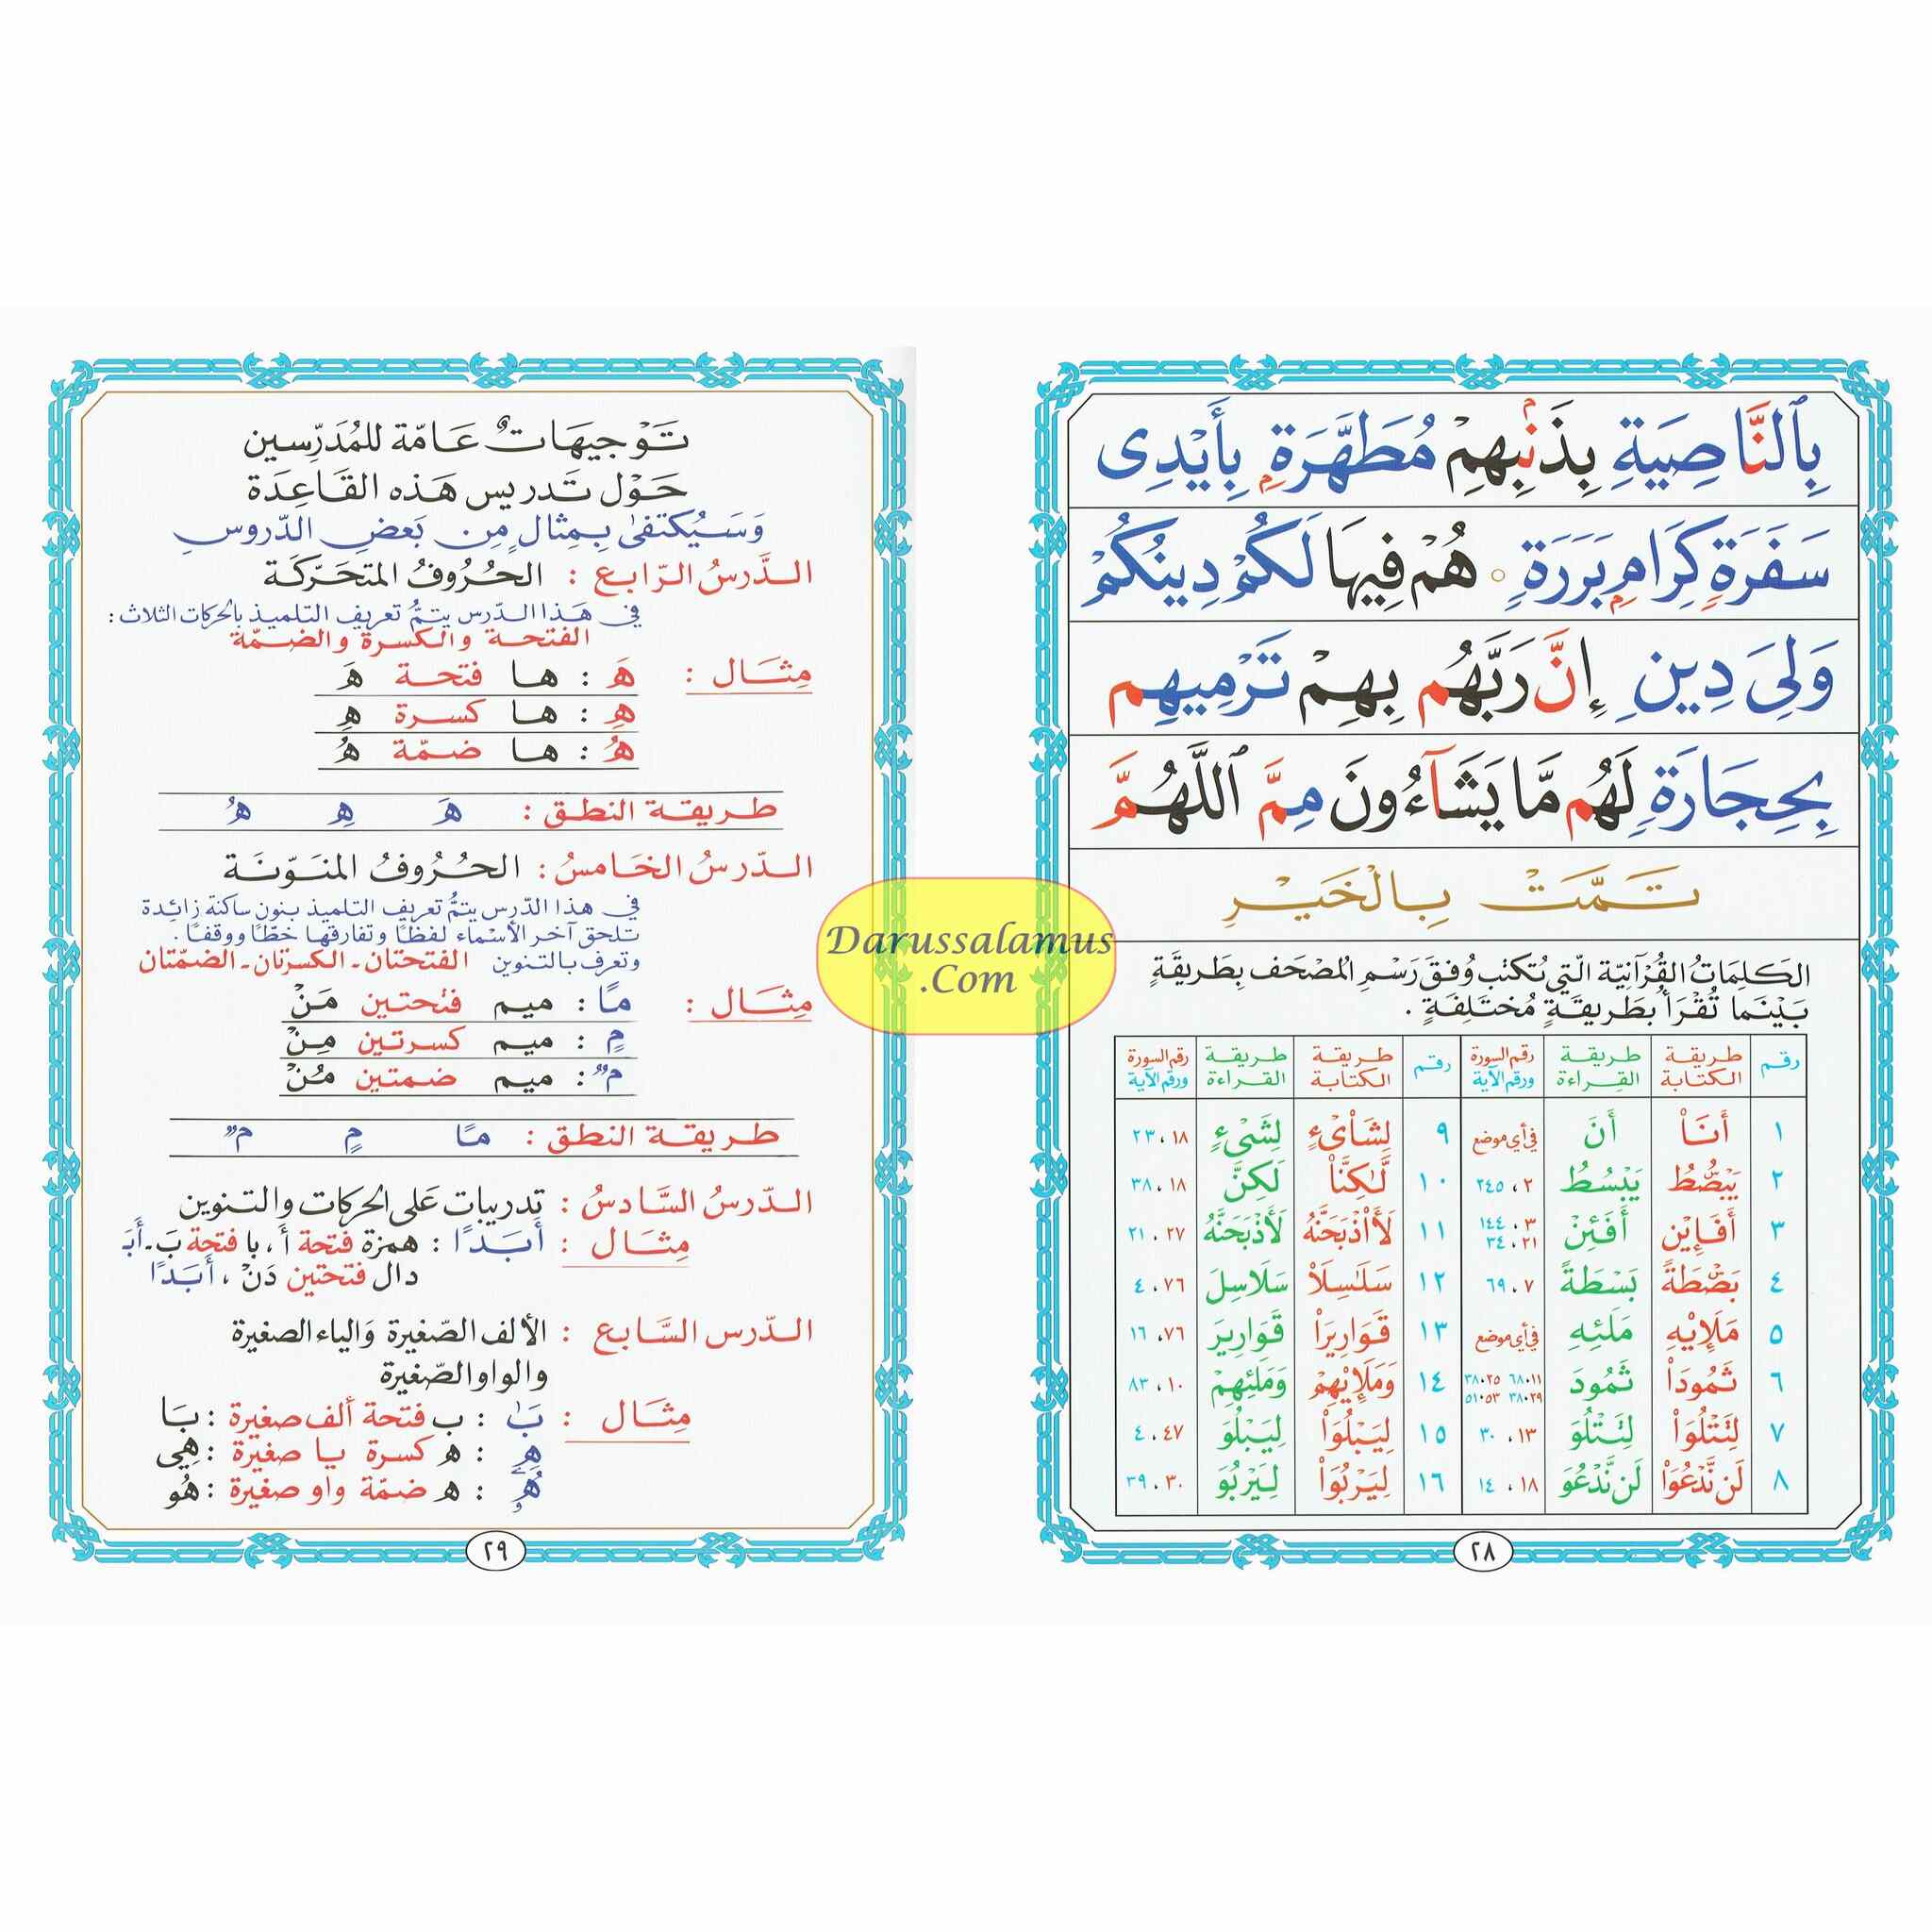 بِٱلنَّاصِيَةِ بِذَنۢبِهِمْ مُطَهَّرَةٍۭ بِأَيْدِى
سَفَرَةٍ كِرَامٍۭ بَرَرَةٍ ۝ هُمْ فِيهَا لَكُمْ دِينُكُمْ
وَلِىَ دِينِ إِنَّ رَبَّهُم بِهِمْ تَرْمِيهِم
بِحِجَارَةٍ لَهُم مَّا يَشَآءُونَ مِمَّ ٱللَّهُمَّ
تَمَّتْ بِالْخَيْرِ
الكَلِمَاتُ القُرْآنِيَّة الَّتِي تُكتَب وُفقَ رَسْمِ المُصْحَف بِطَرِيقَةٍ
بَيْنَمَا تُقْرَأُ بطَرِيقَةٍ مُختَلِفَةٍ .
رقم طريقة الكتابة طريقة القراءة رقم السورة ورقم الآية رقم طريقة الكتابة طريقة القراءة رقم السورة ورقم الآية
١ أَنَا۠ أَنَ في أي موضع ٩ لِشَا۟ىْءٍ لِشَىْءٍ ١٨ ، ٢٣
٢ يَبْصُۜطُ يَبْسُطُ ٢ ، ٢٤٥ ١٠ لَّٰكِنَّا۠ لَكِنَّ ١٨ ، ٣٨
٣ أَفَإِيْن أَفَئِنْ ٣ ، ١٤٤ ٢١ ، ٣٤ ١١ لَأَا۟ذْبَحَنَّهُ لَأَذْبَحَنَّهُ ٢٧ ، ٢١
٤ بَصْۜطَةً بَسْطَةً ٧ ، ٦٩ ١٢ سَلَٰسِلَا۟ سَلَاسِلَ ٧٦ ، ٤
٥ مَلَإِيْهِ مَلَئِهِ في أي موضع ١٣ قَوَارِيرَا۟ قَوَارِيرَ ٧٦ ، ١٦
٦ ثَمُودَا۟ ثَمُودَ ١١ ، ٦٨ ٢٥ ، ٣٨ ٢٩ ، ٣٨ ٥٣ ، ٥١ ١٤ وَمَلَإِيْهِمْ وَمَلَئِهِمْ ١٠ ، ٨٣
٧ لِتَتْلُوَا۟ لِتَتْلُوَ ١٣ ، ٣٠ ١٥ لِيَبْلُوَا۟ لِيَبْلُوَ ٤٧ ، ٤
٨ لَن نَّدْعُوَا۟ لَن نَّدْعُوَ ١٨ ، ١٤ ١٦ لِيَرْبُوَا۟ لِيَرْبُوَ ٣٠ ، ٣٩
٢٨
تَوْجيهَاتٌ عَامّة للمُدَرِّسين
حَوْل تَدريس هَذه القَاعِدَة
وَسَيُكتفىٰ بِمِثال مِن بَعضِ الدّروسِ
الدَّرسُ الرّابع : الحُرُوفُ المتحَرّكَة
في هَذا الدّرس يتمُّ تعريف التلميذ بالحركات الثلاث :
الفتحة والكسرة والضمّة
مِثَال : هَ : ها فتحة هَ
هِ : ها كسرة هِ
هُ : ها ضمّة هُ
طريقة النطق : هَ هِ هُ
الدّرسُ الخامسُ : الحُرُوفُ المنَوّنَة
في هذا الدّرس يتمُّ تعريف التلميذ بنون ساكنة زائِدة
تلحق آخر الأسماء لفظًا وتفارقها خطًّا ووقفًا .
وتعرف بالتنوين الفتحتان ـ الكسرتان ـ الضمّتان
مِثَال : مًا : ميم فتحتين مَنْ
مٍ : ميم كسرتين مِنْ
مٌ : ميم ضمتين مُنْ
طريقة النطق : مًا مٍ مٌ
الدّرسُ السَّادسُ : تدريبات عَلى الحركات والتنوين
مِثَال : أَبَدًا : همزة فتحة أَ ، با فتحة بَ ـ أَبَ
دال فتحتين دَنْ ، أَبَدًا
الدّرس السَّابع : الألف الصّغيرة وَالياء الصغيرة
والواو الصّغيرة
مِثَال : بَٰ : ب فتحة ألف صغيرة : بَا
هِۦ : ه كسرة يا صغيرة : هِي
هُۥ : ه ضمّة واو صغيرة : هُو
٢٩
Darussalamus
.Com